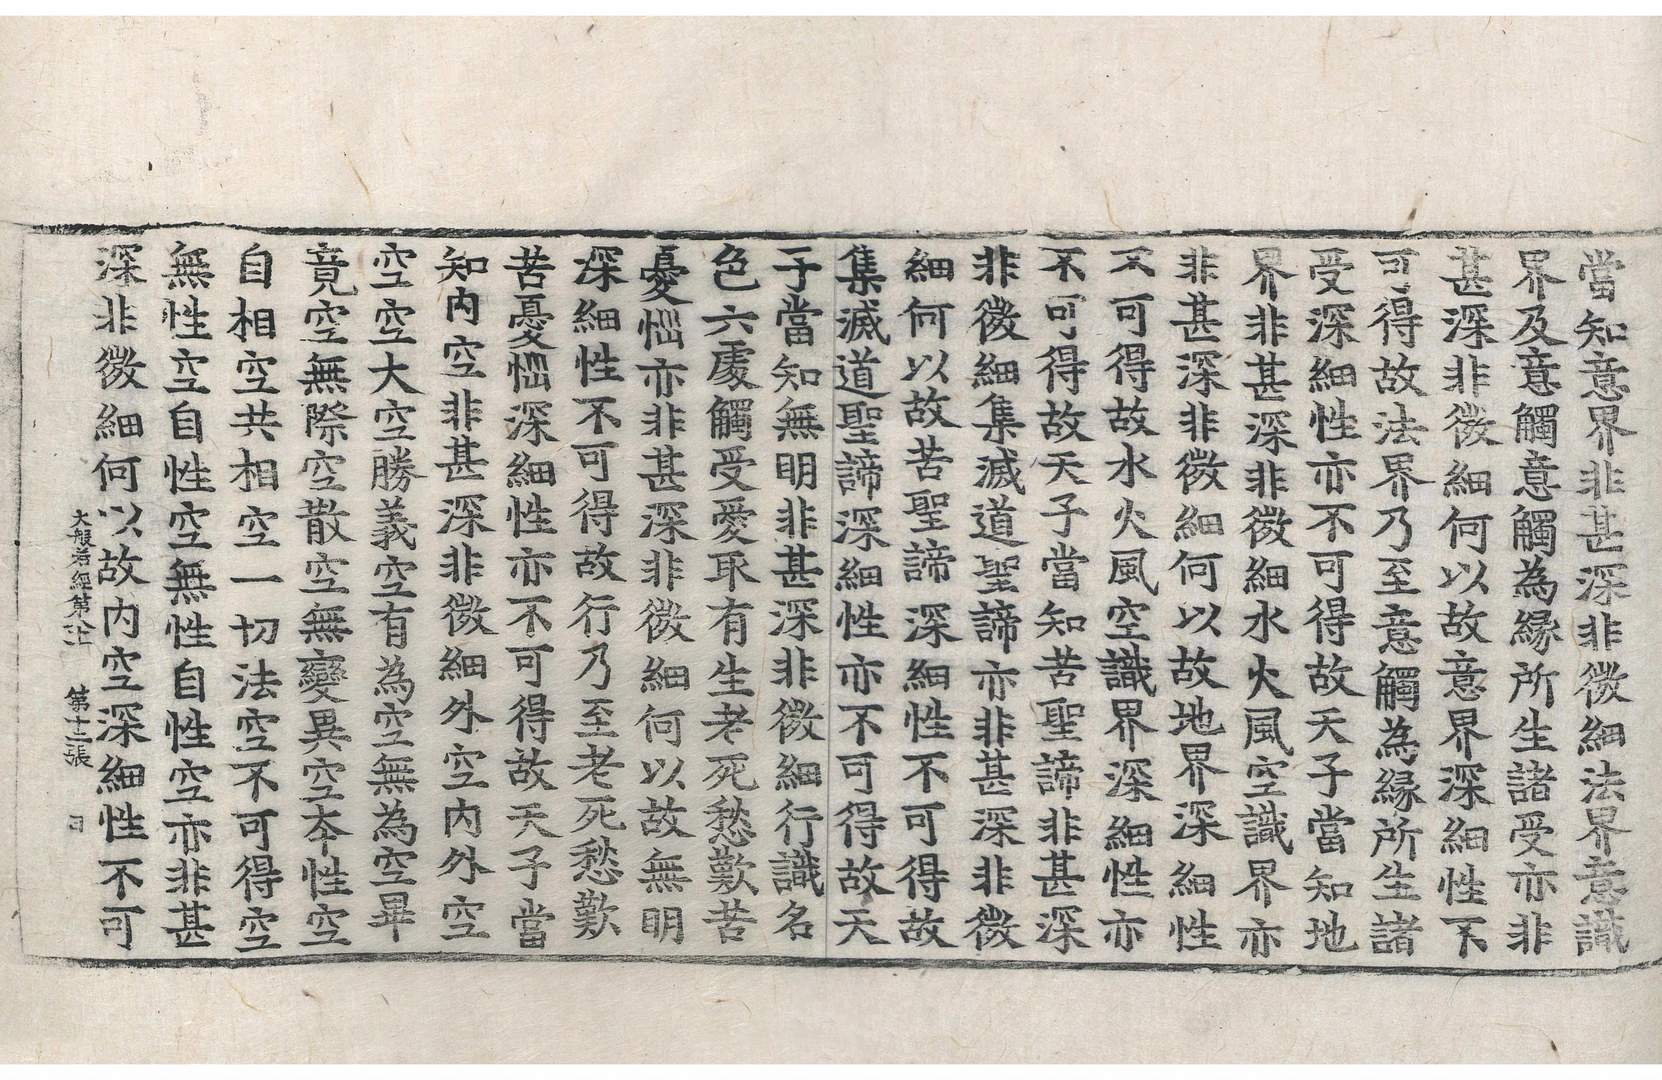 當知意界非甚深非微細法界意識
界及意觸意觸為縁所生諸受亦非
甚深非微細何以故意界深細性不
可得故法界乃至意觸為縁所生諸
受深細性亦不可得故天子當知地
界非甚深非微細水火風空識界亦
非甚深非微細何以故地界深細性
不可得故水火風空識界深細性亦
不可得故天子當知苦聖諦非甚深
非微細集滅道聖諦亦非甚深非微
細何以故苦聖諦深細性不可得故
集滅道聖諦深細性亦不可得故天
子當知無明非甚深非微細行識名
色六處觸受愛取有生老死愁歎苦
憂惱亦非甚深非微細何以故無明
深細性不可得故行乃至老死愁歎
苦憂惱深細性亦不可得故天子當
知内空非甚深非微細外空内外空
空空大空勝義空有為空無為空畢
竟空無際空散空無變異空本性空
自相空共相空一切法空不可得空
無性空自性空無性自性空亦非甚
深非微細何以故内空深細性不可
大般若經第八十一 第十二張 日